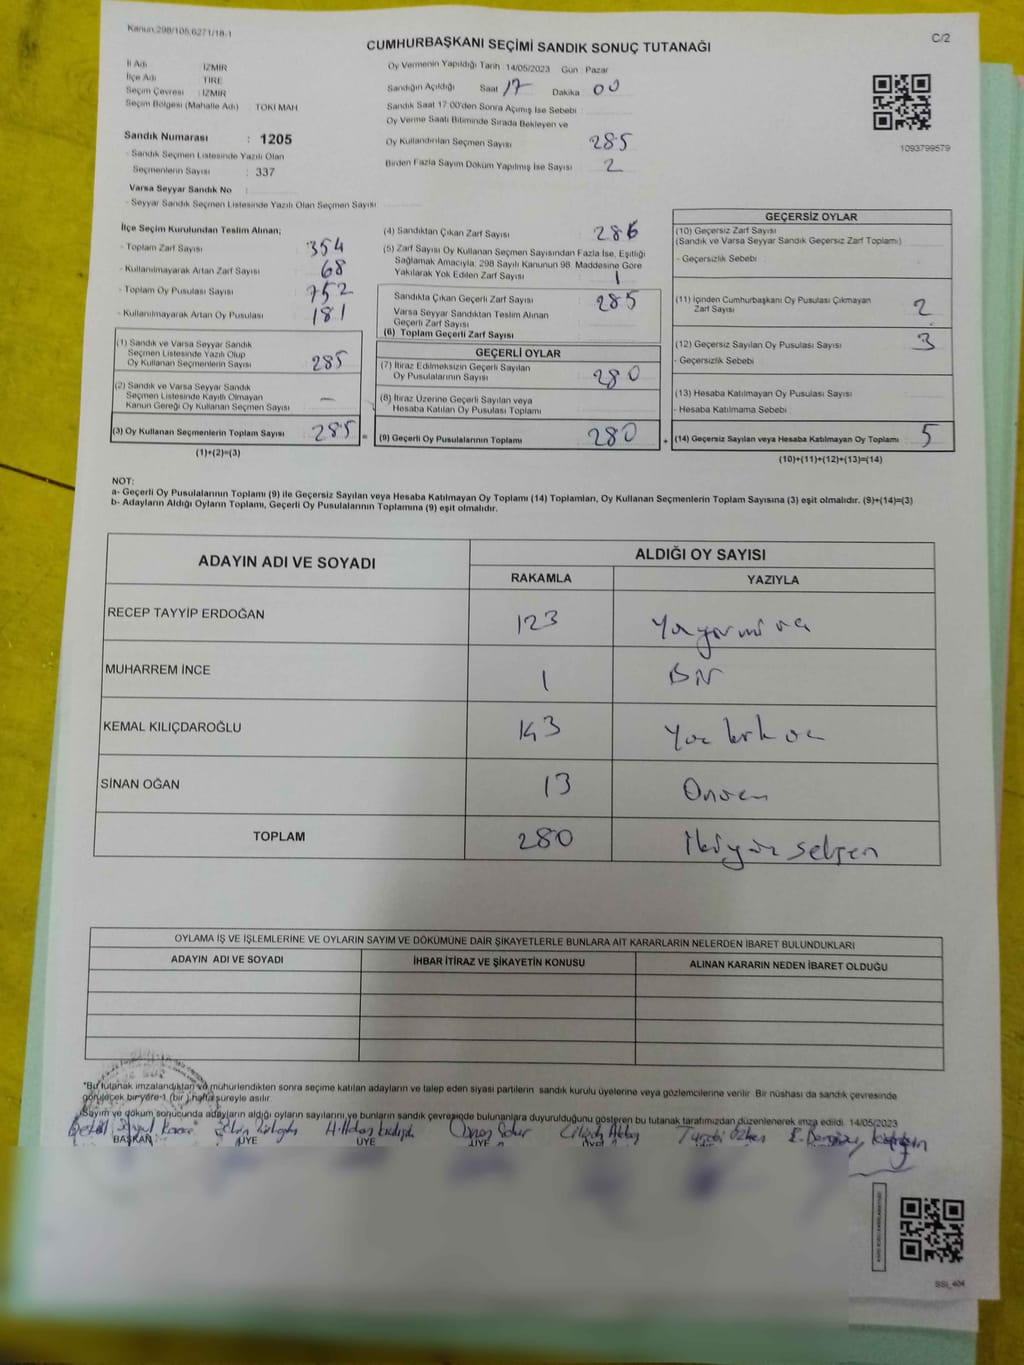 Kanun.298/105,6271/18-1
C/2
CUMHURBAŞKANI SEÇİMİ SANDIK SONUÇ TUTANAĞI
İl Adı İZMİR
İlçe Adı TİRE
Seçim Çevresi : İZMİR
Seçim Bölgesi (Mahalle Adı) TOKI MAH
Sandık Numarası : 1205
- Sandık Seçmen Listesinde Yazılı Olan
Seçmenlerin Sayısı : 337
Varsa Seyyar Sandık No :
- Seyyar Sandık Seçmen Listesinde Yazılı Olan Seçmen Sayısı
Oy Vermenin Yapıldığı Tarih 14/05/2023 Gün Pazar
Sandığın Açıldığı Saat 17 Dakika 00
Sandık Saat 17:00'den Sonra Açılmış İse Sebebi
Oy Verme Saati Bitiminde Sırada Bekleyen ve
Oy Kullandırılan Seçmen Sayısı 285
Birden Fazla Sayım Döküm Yapılmış İse Sayısı 2
1093799579
İlçe Seçim Kurulundan Teslim Alınan;
- Toplam Zarf Sayısı 354
- Kullanılmayarak Artan Zarf Sayısı 68
- Toplam Oy Pusulası Sayısı 752
- Kullanılmayarak Artan Oy Pusulası 181
(1) Sandık ve Varsa Seyyar Sandık
Seçmen Listesinde Yazılı Olup
Oy Kullanan Seçmenlerin Sayısı 285
(2) Sandık ve Varsa Seyyar Sandık
Seçmen Listesinde Kayıtlı Olmayan
Kanun Gereği Oy Kullanan Seçmen Sayısı –
(3) Oy Kullanan Seçmenlerin Toplam Sayısı 285 =
(1)+(2)=(3)
(4) Sandıktan Çıkan Zarf Sayısı 286
(5) Zarf Sayısı Oy Kullanan Seçmen Sayısından Fazla İse, Eşitliği
Sağlamak Amacıyla, 298 Sayılı Kanunun 98. Maddesine Göre
Yakılarak Yok Edilen Zarf Sayısı 1
Sandıkta Çıkan Geçerli Zarf Sayısı 285
Varsa Seyyar Sandıktan Teslim Alınan
Geçerli Zarf Sayısı
(6) Toplam Geçerli Zarf Sayısı
GEÇERLİ OYLAR
(7) İtiraz Edilmeksizin Geçerli Sayılan
Oy Pusulalarının Sayısı 280
(8) İtiraz Üzerine Geçerli Sayılan veya
Hesaba Katılan Oy Pusulası Toplamı
(9) Geçerli Oy Pusulalarının Toplamı 280 +
GEÇERSİZ OYLAR
(10) Geçersiz Zarf Sayısı
(Sandık ve Varsa Seyyar Sandık Geçersiz Zarf Toplamı)
- Geçersizlik Sebebi
(11) İçinden Cumhurbaşkanı Oy Pusulası Çıkmayan
Zarf Sayısı 2
(12) Geçersiz Sayılan Oy Pusulası Sayısı 3
- Geçersizlik Sebebi
(13) Hesaba Katılmayan Oy Pusulası Sayısı
- Hesaba Katılmama Sebebi
(14) Geçersiz Sayılan veya Hesaba Katılmayan Oy Toplamı 5
(10)+(11)+(12)+(13)=(14)
NOT:
a- Geçerli Oy Pusulalarının Toplamı (9) ile Geçersiz Sayılan veya Hesaba Katılmayan Oy Toplamı (14) Toplamları, Oy Kullanan Seçmenlerin Toplam Sayısına (3) eşit olmalıdır. (9)+(14)=(3)
b- Adayların Aldığı Oyların Toplamı, Geçerli Oy Pusulalarının Toplamına (9) eşit olmalıdır.
ADAYIN ADI VE SOYADI ALDIĞI OY SAYISI
RAKAMLA YAZIYLA
RECEP TAYYİP ERDOĞAN 123
MUHARREM İNCE 1
KEMAL KILIÇDAROĞLU 143
SİNAN OĞAN 13
TOPLAM 280 İkiyüz seksen
OYLAMA İŞ VE İŞLEMLERİNE VE OYLARIN SAYIM VE DÖKÜMÜNE DAİR ŞİKAYETLERLE BUNLARA AİT KARARLARIN NELERDEN İBARET BULUNDUKLARI
ADAYIN ADI VE SOYADI İHBAR İTİRAZ VE ŞİKAYETİN KONUSU ALINAN KARARIN NEDEN İBARET OLDUĞU
*Bu tutanak imzalandıktan ve mühürlendikten sonra seçime katılan adayların ve talep eden siyasi partilerin sandık kurulu üyelerine veya gözlemcilerine verilir. Bir nüshası da sandık çevresinde
görülecek bir yere 1 (bir) hafta süreyle asılır.
Sayım ve döküm sonucunda adayların aldığı oyların sayılarını ve bunların sandık çevresinde bulunanlara duyurulduğunu gösteren bu tutanak tarafımızdan düzenlenerek imza edildi. 14/05/2023
BAŞKAN ÜYE ÜYE ÜYE
SSI_404